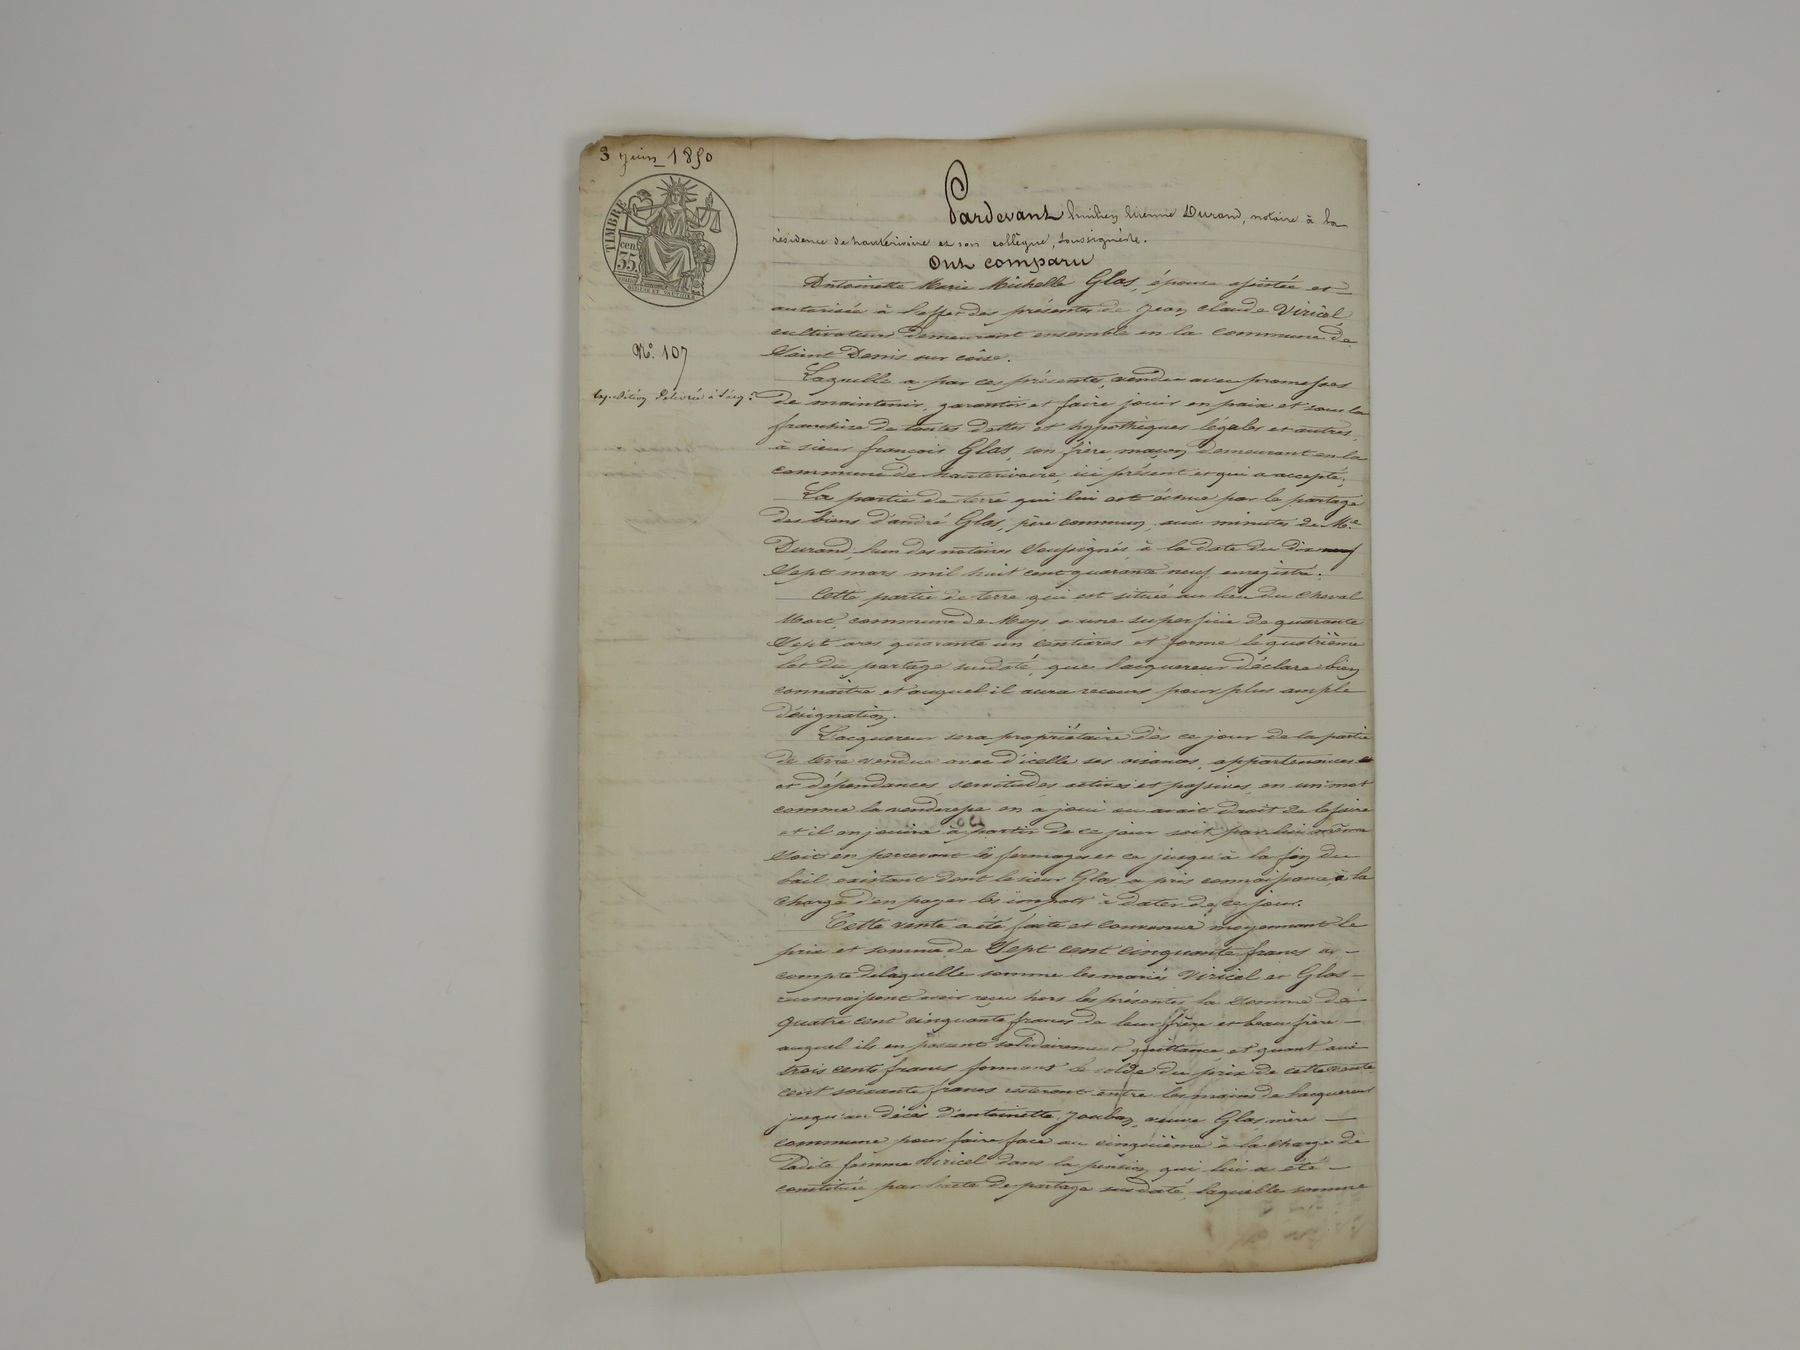 3 juin 1850
TIMBRE
cen. 35.
N°. 107
Expédition délivrée à l'acq.r
Pardevant Durand, notaire à la
résidence de hauterivoire et son collègue, soussignés.
Ont comparu
Antoinette Marie Michelle Glas, épouse assistée et
autorisée à l'effet des présentes de Jean Claude Viricel
cultivateur demeurant ensemble en la commune de
Saint Denis sur coise.
Laquelle a par ces présentes, vendu avec promesses
de maintenir, garantir et faire jouir en paix et sous la
franchise de toutes dettes et hypothèques légales et autres,
à sieur françois Glas, son frère, maçon demeurant en la
commune de hauterivoire, ici présent et qui a accepté;
La partie de terre qui lui est échue par le partage
des biens d'andré Glas, père commun, aux minutes de Me
Durand, l'un des notaires soussignés, à la date du dix neuf
Sept mars mil huit cent quarante neuf, enregistré.
Cette partie de terre qui est située au lieu du Cheval
Mort, commune de Meys a une superficie de quarante
Sept ares quarante un centiares et forme le quatrième
lot du partage susdaté, que l'acquereur déclare bien
connaitre et auquel il aura recours pour plus ample
désignation.
L'acquereur sera propriétaire dès ce jour de la partie
de terre vendue avec d'icelle ses aisances, appartenances et
et dépendances, servitudes actives et passives, en un mot
comme la venderesse en a joui ou avait droit de le faire
et il en jouira à partir de ce jour soit par lui même
Soit en percevant les fermages et ce jusqu'à la fin du
bail existant dont le sieur Glas a pris connaissance, à la
charge d'en payer les impots à dater de ce jour.
Cette vente a été faite et convenue moyennant le
prix et somme de Sept cent cinquante francs à
compte de laquelle somme les mariés Viricel et Glas
reconnaissent avoir reçu hors les présentes la somme de
quatre cent cinquante francs de leur frère et beau frère
auquel ils en passent solidairement quittance et quant aux
trois cents francs formant le solde du prix de cette vente
cent soixante francs resteront entre les mains de l'acquereur
jusqu'au décès d'antoinette Joubon, veuve Glas, mère
commune pour faire face au cinquième à la charge de
Ladite femme Viricel dans la pension qui lui a été
constituée par l'acte de partage susdaté, laquelle somme